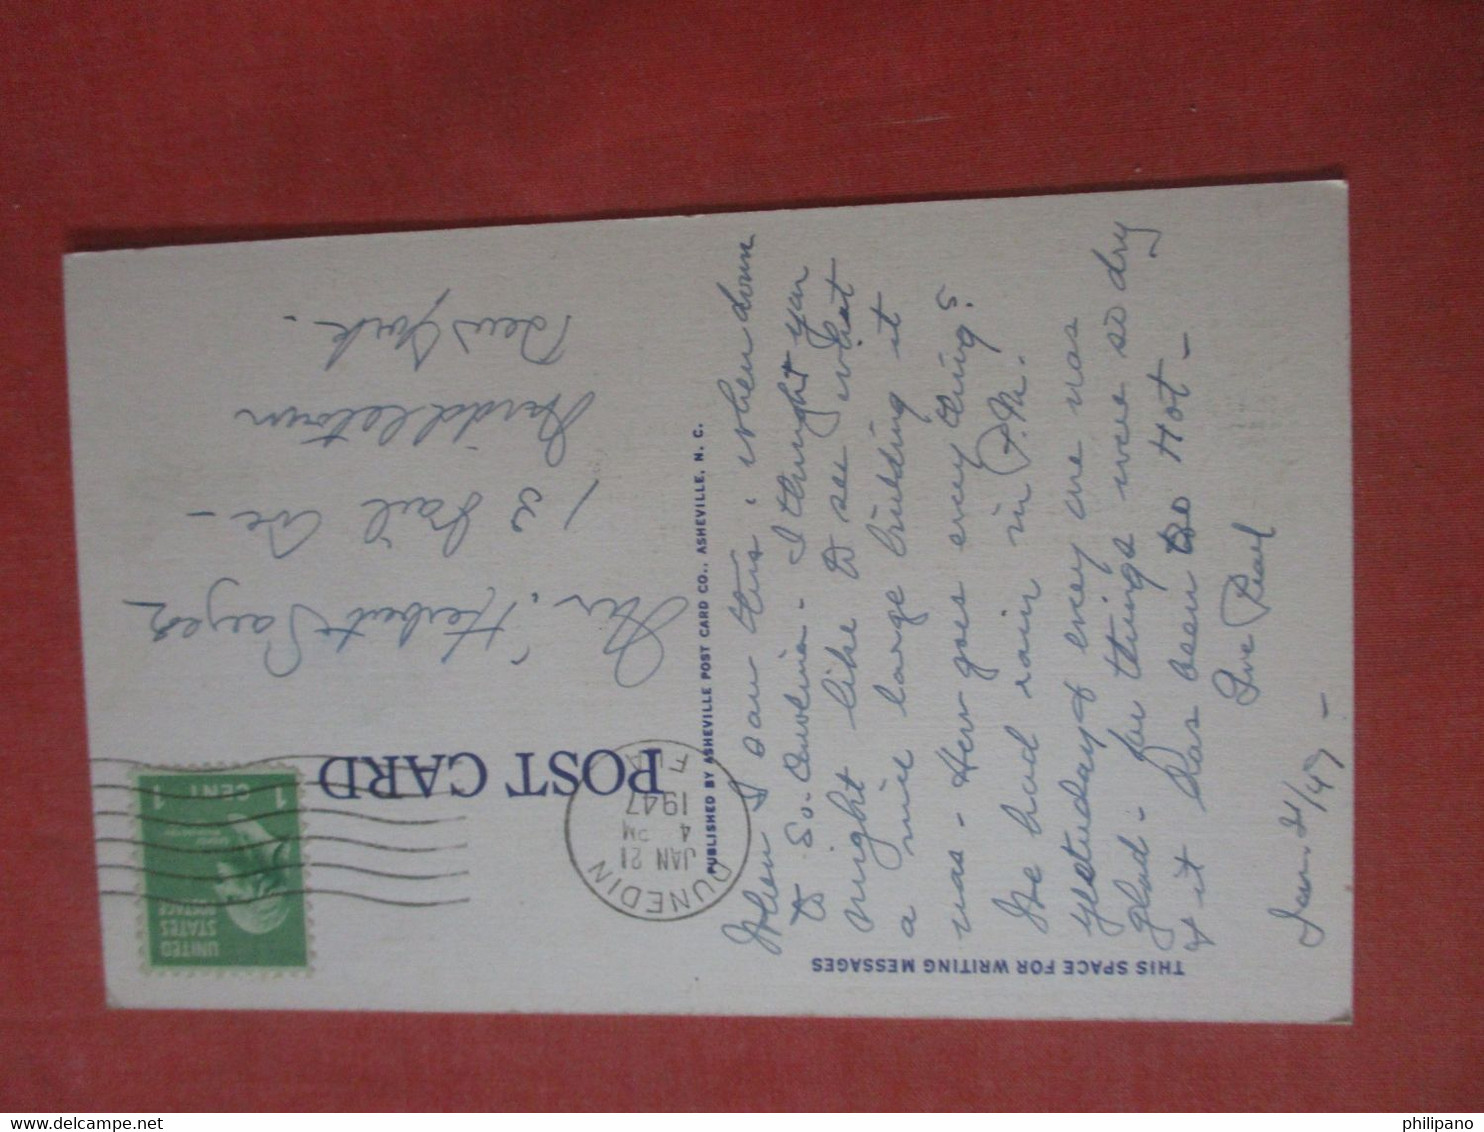 THIS SPACE FOR WRITING MESSAGES
When I saw this. when down
to So. Carolina - I thought you
might like to see what
a nice large building it
was - How goes everything?
We had rain in P.M.
yesterday & every one was
glad - for things were so dry
& it has been too Hot -
Pearl
Jan. 21/47 -
PUBLISHED BY ASHEVILLE POST CARD CO., ASHEVILLE, N. C.
POST CARD
DUNEDIN
JAN 21
4 PM
1947
FLA.
UNITED
STATES
POSTAGE
1 CENT 1
Mr. Herbert Sayer
Ave -
Middletown
New York -
philipano